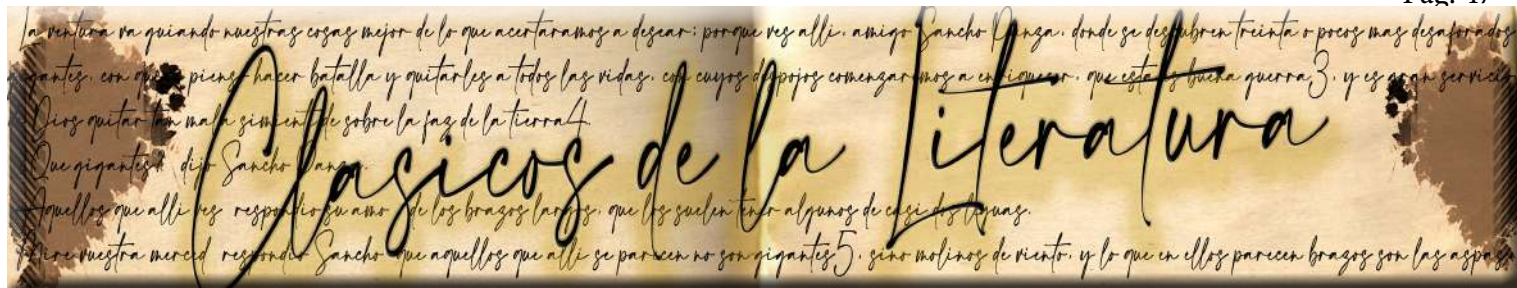 Pag. 47
La ventura va guiando nuestras cosas mejor de lo que acertaramos a desear; porque ves alli, amigo Sancho Panza, donde se descubren treinta o pocos mas desaforados
gigantes, con quien pienso hacer batalla y quitarles a todos las vidas, con cuyos despojos comenzaremos a enriquecer, que esta es buena guerra3, y es gran servicio
Dios quitar tan mala simiente de sobre la faz de la tierra4.
Que gigantes? dijo Sancho Panza.
Aquellos que alli ves respondio su amo de los brazos largos, que los suelen tener algunos de casi dos leguas.
Mire vuestra merced respondio Sancho que aquellos que alli se parecen no son gigantes5, sino molinos de viento, y lo que en ellos parecen brazos son las aspas,
Clasicos de la Literatura